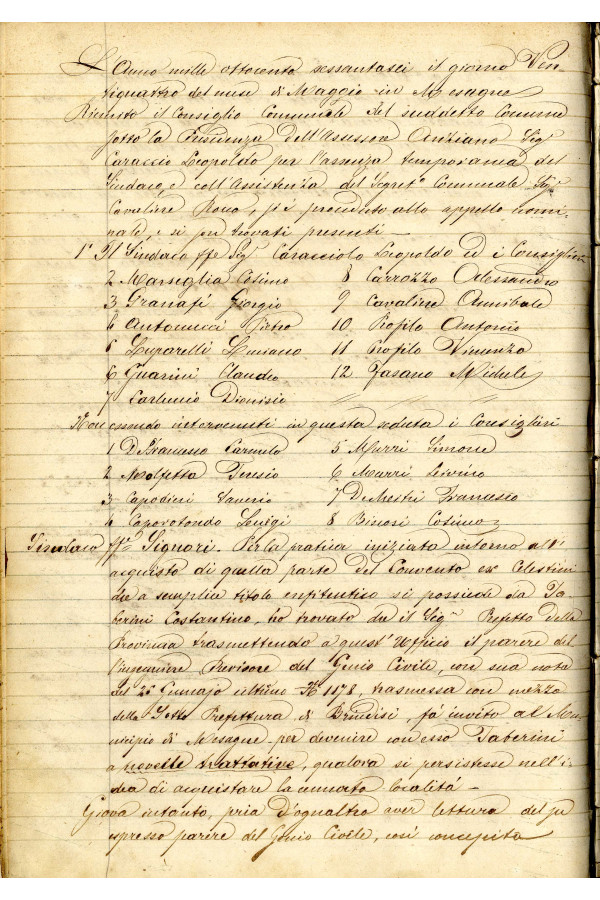 L'Anno mille ottocento sessantasei il giorno Ven-
tiquattro del mese di Maggio in Mesagne
Riunito il Consiglio Comunale del suddetto Comune
sotto la Presidenza dell'Assessore Anziano Sigr
Caracciolo Leopoldo per l'assenza temporanea del
Sindaco, e coll'Assistenza del Segreto Comunale Sigr
Cavaliere Rocco, si è proceduto allo appello nomi-
nale, e si son trovati presenti —
1° Il Sindaco ffe Sigr Caracciolo Leopoldo ed i Consiglieri
2 Marseglia Cosimo 8 Carrozzo Alessandro
3 Granafi Giorgio 9 Cavaliere Annibale
4 Antonucci Pietro 10 Profilo Antonio
5 Luparelli 11 Profilo Vincenzo
6 Guarini Claudio 12 Fasano Michele
7 Dionisio " " "
Non essendo intervenuti in questa seduta i Consiglieri
1 DeFrancesco Carmelo 5 Murri Simone
2 Molfetta Teresio 6 Murri
3 Capodieci Saverio 7 DeMestri Francesco
4 Caporotondo Luigi 8 Cosimo
Sindaco ffe Signori. Per la pratica iniziata intorno all'
acquisto di quella parte del Convento ex Celestini
che a semplice titolo enfiteutico si possiede da Ta-
berini Costantino, ho trovato che il Sigr Prefetto della
Provincia trasmettendo a quest'Uffizio il parere del
l'ingegniere Revisore del Genio Civile, con sua nota
del 26 Gennajo ultimo N 1178, trasmessa con mezzo
della Sotto Prefettura di Brindisi, fa invito al Mu-
nicipio di Mesagne per devenire con esso Taberini
a novelle trattative, qualora si persistesse nell'i-
dea di acquistare la cennata località —
Giova intanto, pria d'ognaltro aver lettura del
espresso parere del Genio Civile, così concepito